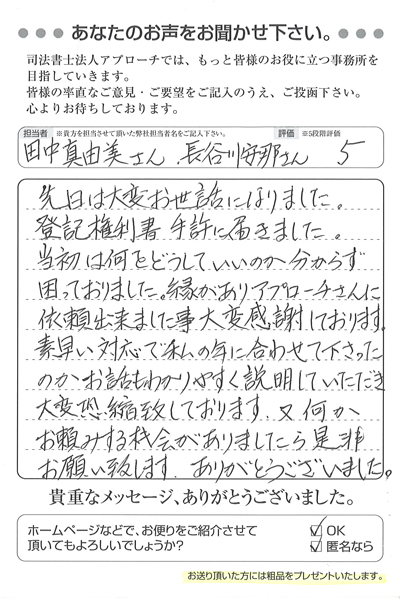 ●●● あなたのお声をお聞かせ下さい。●●●
司法書士法人アプローチでは、もっと皆様のお役に立つ事務所を
目指していきます。
皆様の率直なご意見・ご要望をご記入のうえ、ご投函下さい。
心よりお待ちしております。
担当者 ※貴方を担当させて頂いた弊社担当者名をご記入下さい。 評価 ※5段階評価
田中真由美さん 長谷川安那さん 5
先日は大変お世話になりました。
登記権利書 手許に届きました。
当初は何をどうしていいのか分からず
困っておりました。縁がありアプローチさんに
依頼出来ました事大変感謝しております。
素早い対応で私の年に合わせて下さった
のかお話もわかりやすく説明していただき
大変恐縮致しております。又何か
お頼みする機会がありましたら是非
お願い致します。ありがとうございました。
貴重なメッセージ、ありがとうございました。
ホームページなどで、お便りをご紹介させて
頂いてもよろしいでしょうか？
☑ OK
☑ 匿名なら
お送り頂いた方には粗品をプレゼントいたします。